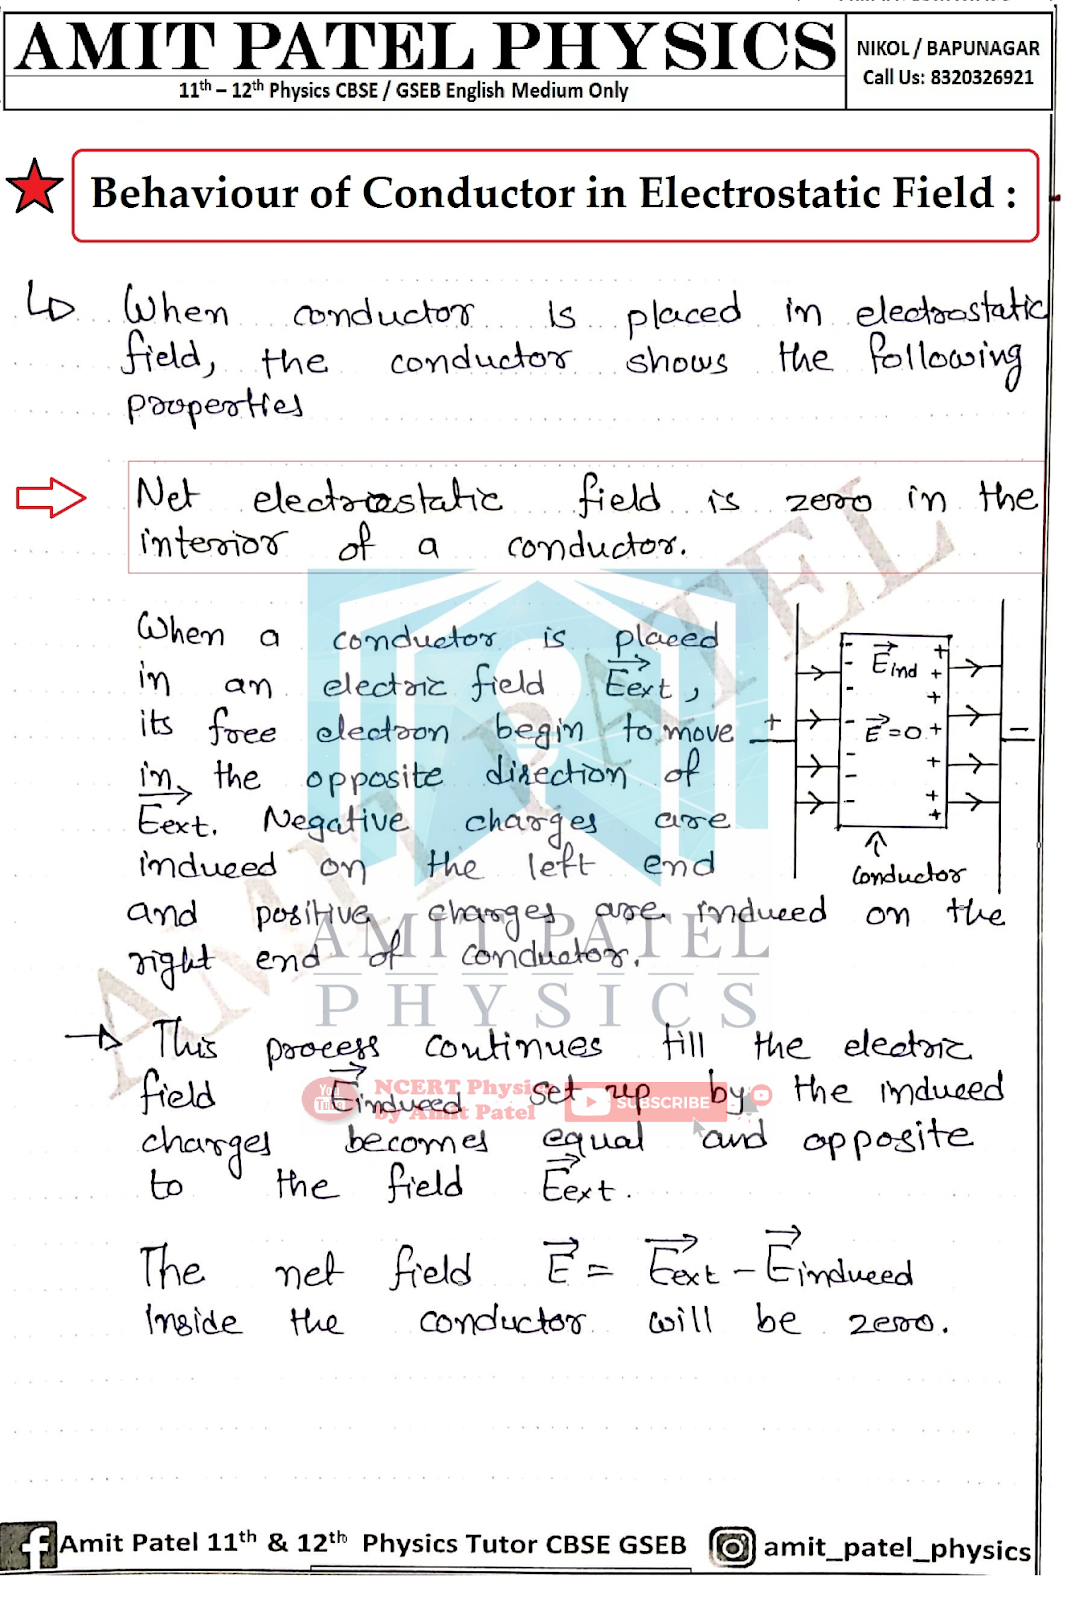 AMIT PATEL PHYSICS
11th – 12th Physics CBSE / GSEB English Medium Only
NIKOL / BAPUNAGAR
Call Us: 8320326921
Behaviour of Conductor in Electrostatic Field :
When conductor is placed in electrostatic
field, the conductor shows the following
properties
Net electrostatic field is zero in the
interior of a conductor.
When a conductor is placed
in an electric field E⃗ext,
its free electron begin to move
in the opposite direction of
E⃗ext. Negative charges are
induced on the left end
and positive charges are induced on the
right end of conductor.
E⃗ind
E⃗=0
+
−
conductor
AMIT PATEL
AMIT PATEL
PHYSICS
This process continues till the electric
field E⃗induced set up by the induced
charges becomes equal and opposite
to the field E⃗ext.
You Tube
NCERT Physics
by Amit Patel
SUBSCRIBE
The net field E⃗ = E⃗ext − E⃗induced
Inside the conductor will be zero.
Amit Patel 11th & 12th Physics Tutor CBSE GSEB
amit_patel_physics